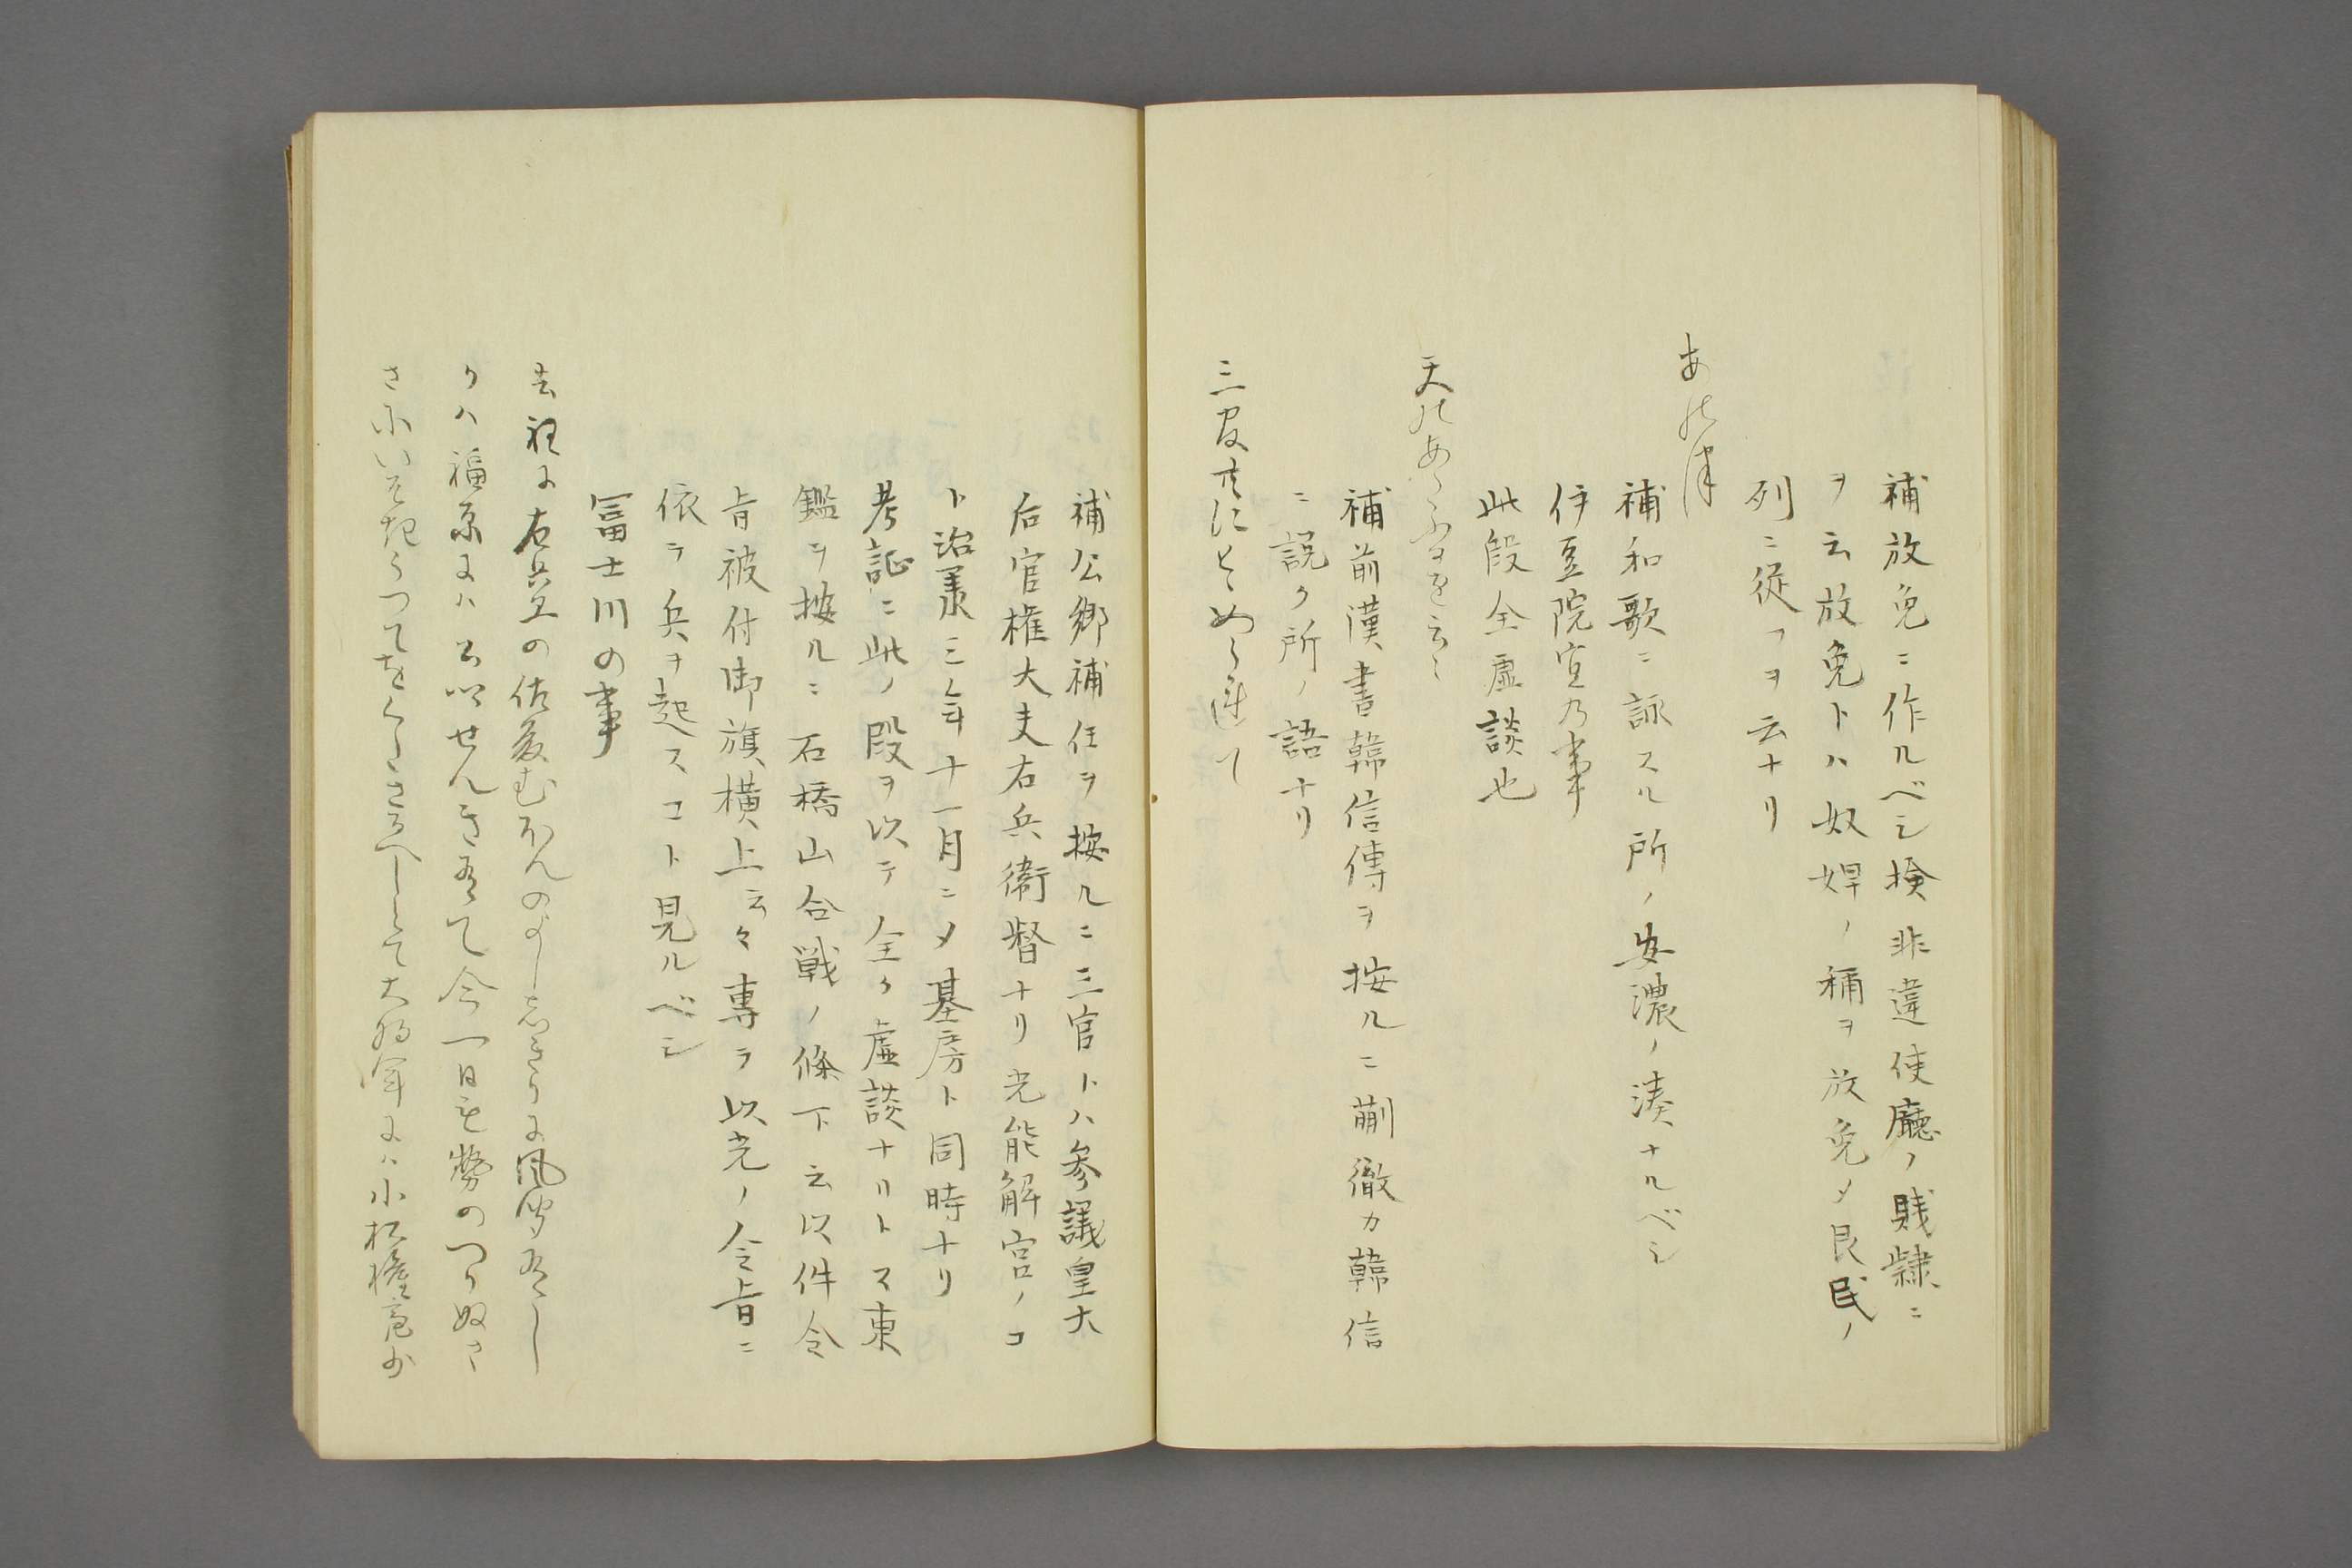 補放免ニ作ルベシ検非違使廳ノ賎隷ニ
ヲ云放免トハ奴婢ノ稱ヲ放免〆良民ノ
列ニ從フヲ云ナリ
あの津
補和歌ニ詠スル所ノ安濃ノ湊ナルベシ
伊豆院宣乃事
此段全虚談也
天のあたふるを云々
補前漢書韓信傳ヲ按ルニ蒯徹カ韓信
ニ説ク所ノ語ナリ
三官共にとゝめられて
補公卿補任ヲ按ルニ三官トハ参議皇大
后宮権大夫右兵衛督ナリ光能解官ノコ
ト治承三年十一月ニ〆基房ト同時ナリ
考証ニ此ノ段ヲ以テ全ク虚談ナリトス東
鑑ヲ按ルニ石橋山合戦ノ條下云以件令
旨被付御旗横上云々専ラ以光ノ令旨ニ
依テ兵ヲ起スコト見ルベシ
冨士川の事
去程に右兵衛の佐殿むほんのよししきりに風聞有し
かハ福原にハ公卿せんき有て今一日も勢のつかぬさ
さきにいそき うつてをくたさるへしとて大将軍にハ小松権亮少